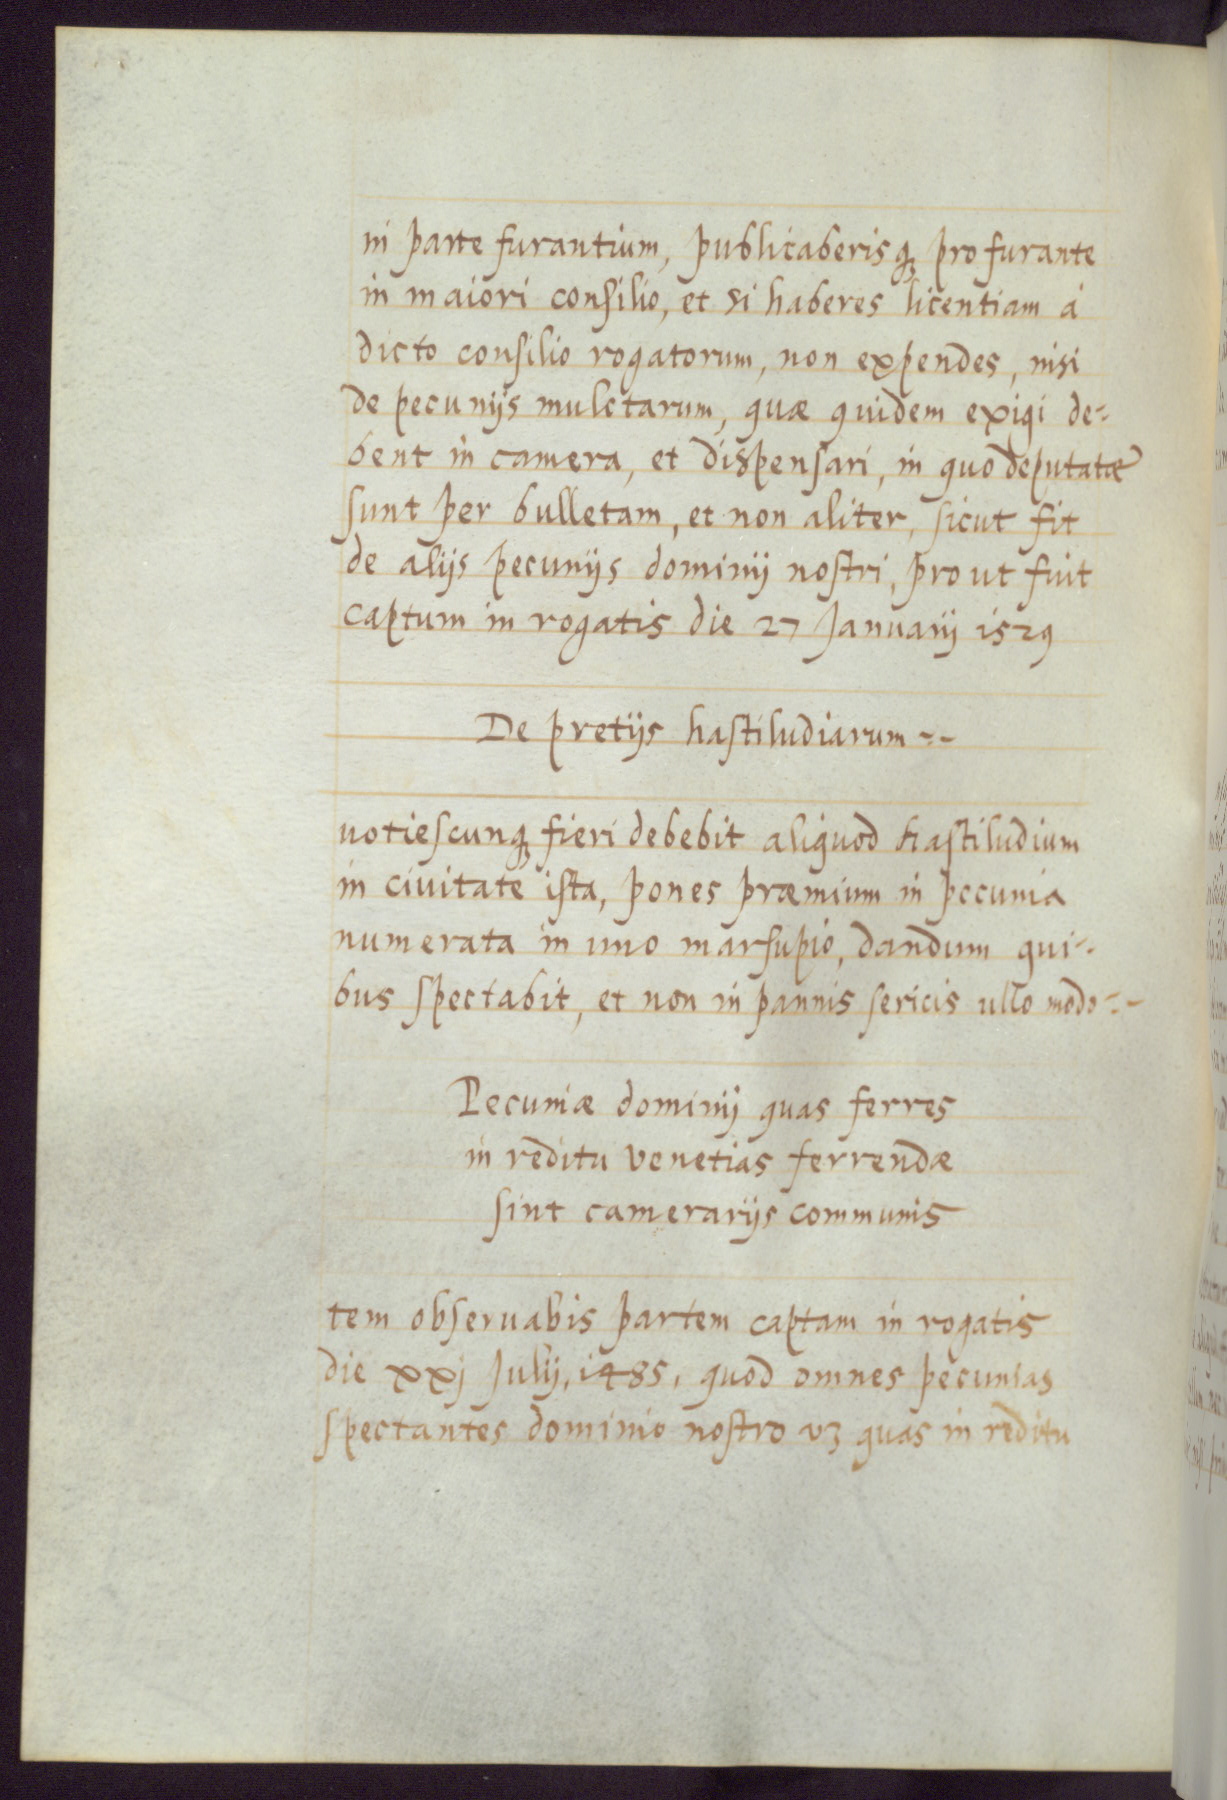 in parte furantium, publicaberisq; pro furante
in maiori consilio, et si haberes licentiam à
dicto consilio rogatorum, non expendes, nisi
de pecunijs mulctarum, quæ quidem exigi de-
bent in camera, et dispensari, in quo deputatæ
sunt per bulletam, et non aliter, sicut fit
de alijs pecunijs dominij nostri, prout fuit
captum in rogatis die 27 Januarij 1529
De pretijs hastiludiarum--
uotiescunq; fieri debebit aliquod hastiludium
in ciuitate ista, pones præmium in pecunia
numerata in uno marsupio, dandum qui-
bus spectabit, et non in pannis sericis ullo modo--
Pecuniæ dominij quas ferres
in reditu Venetias ferrendæ
sint camerarijs communis
tem obseruabis partem captam in rogatis
die xxj Julij, 1485, quod omnes pecunias
spectantes dominio nostro vz quas in reditu